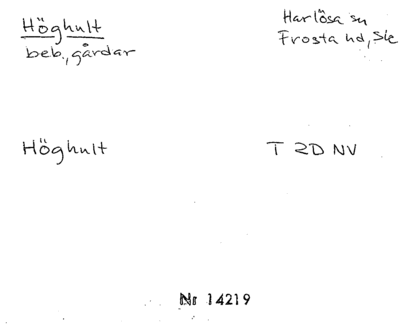 Höghult
beb., gårdar
Harlösa sn
Frosta hd, Ske
Höghult
T 2D NV
Nr 14219